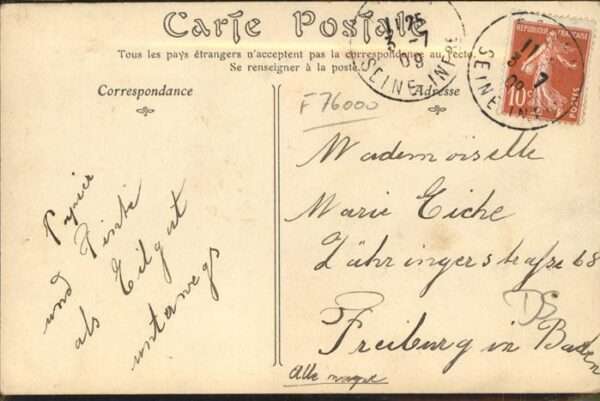 Carte Postale
Tous les pays étrangers n'acceptent pas la correspondance au recto.
Se renseigner à la poste.
Correspondance
Adresse
F 76000
Papier
und Tinte
als Eilgut
unterwegs
Mademoiselle
Marie Eiche
Zähringerstraße 68
Freiburg in Baden
DS
11 25
3 - 7
09
SEINE INFRE
REPUBLIQUE FRANÇAISE
10
POSTES
11
3 7
09
SEINE INF